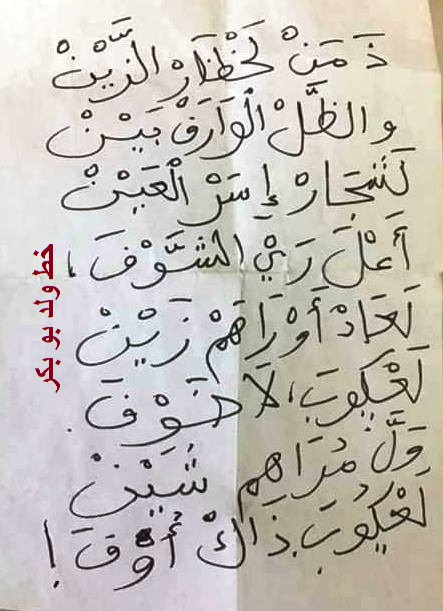 ذَ مَنْ لَخْظَارْ الزَّيْنْ
والظَّلْ الْوَارَفْ بَيْنْ
لَشْجَارْ إِسَرْ الْعَيْنْ
أَعْلَ رَيْ الشَّوْفَ،
لَعَادْ أَوْرَاهَمْ زَيْنْ
لَعْگوبَ، لَا خَوْفَ.
وَلَّ مُرَاهِم شَيْنْ
لَعْگوبَ ذَاكْ أُوْفَ!
خط ولد بو بكر